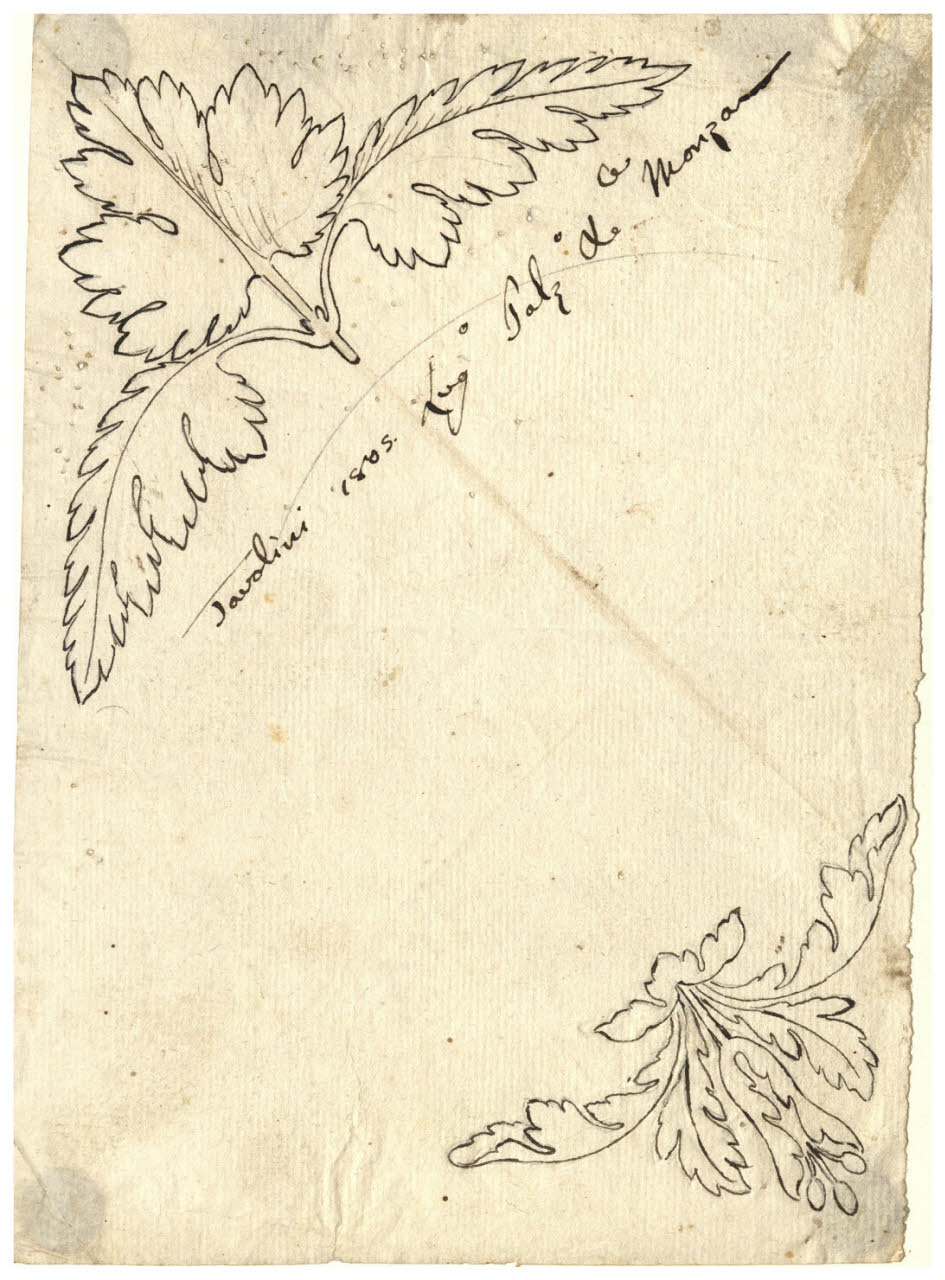 Tavolini 1805. Lug° Palz° Monza